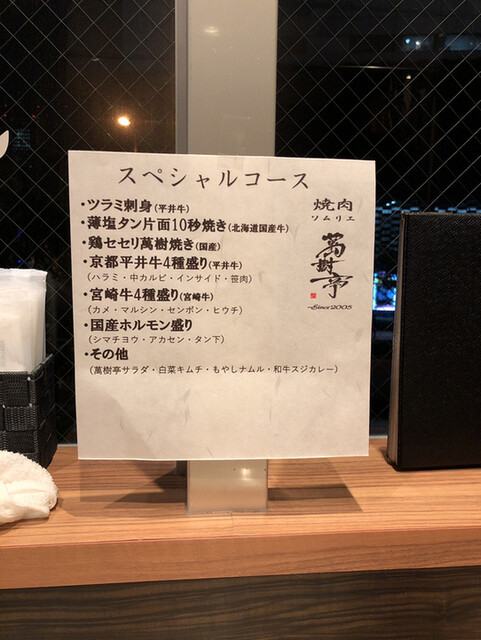 スペシャルコース
・ツラミ刺身(平井牛)
・薄塩タン片面10秒焼き(北海道国産牛)
・鶏セセリ萬樹焼き(国産)
・京都平井牛4種盛り(平井牛)
(ハラミ・中カルビ・インサイド・笹肉)
・宮崎牛4種盛り(宮崎牛)
(カメ・マルシン・センボン・ヒウチ)
・国産ホルモン盛り
(シマチョウ・アカセン・タン下)
・その他
(萬樹亭サラダ・白菜キムチ・もやしナムル・和牛スジカレー)
焼肉
ソムリエ
萬樹亭
Since2005